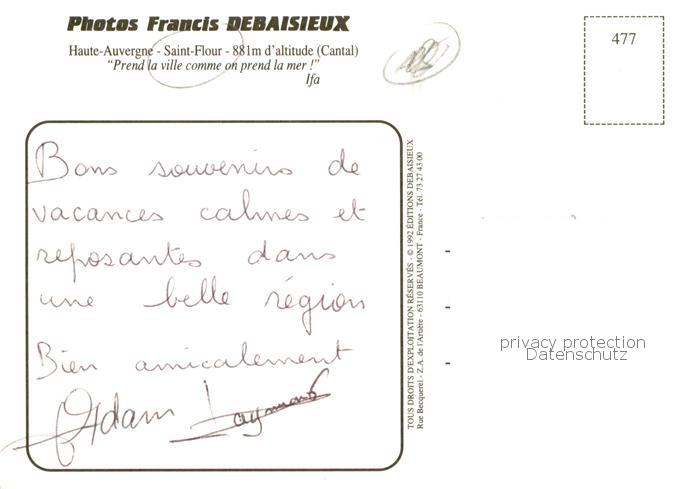 Photos Francis DEBAISIEUX
Haute-Auvergne - Saint-Flour - 881m d'altitude (Cantal)
“Prend la ville comme on prend la mer !”
Ifa
477
Bons souvenirs de
vacances calmes et
reposantes dans
une belle région
Bien amicalement
Adam Raymond
TOUS DROITS D'EXPLOITATION RÉSERVÉS - © 1992 ÉDITIONS DEBAISIEUX
Rue Becquerel - Z.A. de l'Artière - 63110 BEAUMONT - France - Tél. 73 27 43 00
privacy protection
Datenschutz